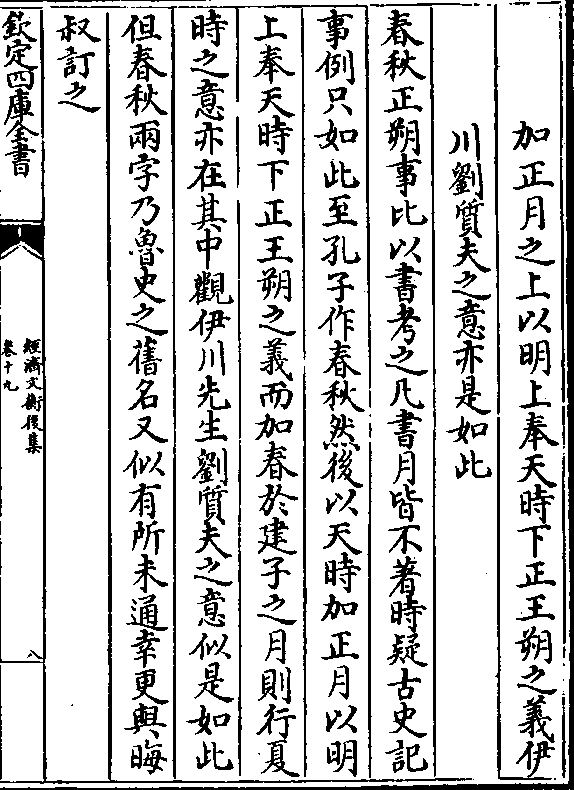 加正月之上以明上奉天時下正王朔之義伊
川劉質夫之意亦是如此
春秋正朔事比以書考之凡書月皆不著時疑古史記
事例只如此至孔子作春秋然後以天時加正月以明
上奉天時下正王朔之義而加春於建子之月則行夏
時之意亦在其中觀伊川先生劉質夫之意似是如此
但春秋兩字乃魯史之舊名又似有所未通幸更與晦
叔訂之
欽定四庫全書
經濟文衡後集
卷十九
八